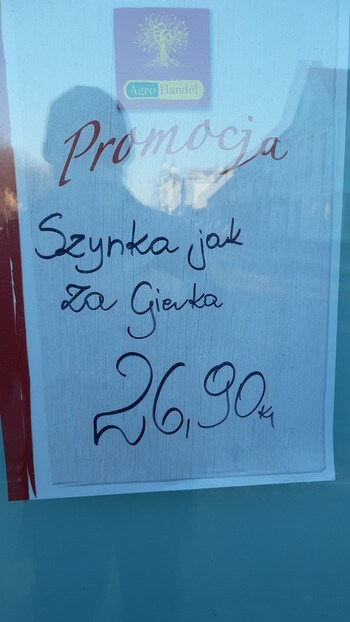 Agro Handel
Promocja
Szynka jak
za Gierka
26,90 kg